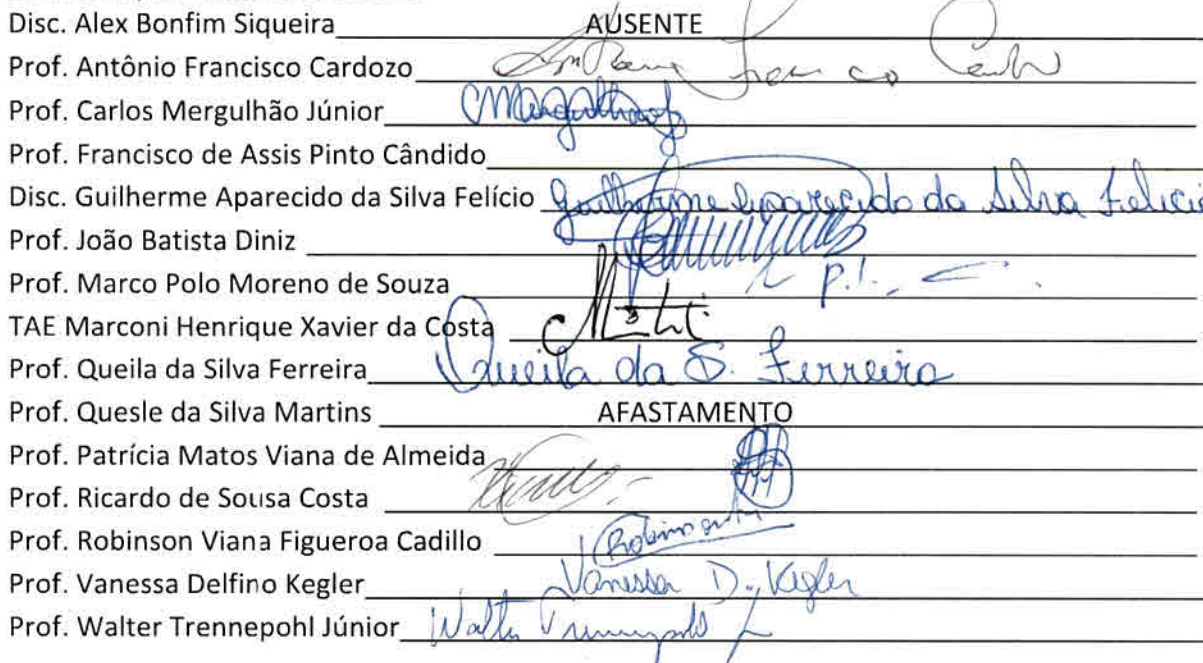 Disc. Alex Bonfim Siqueira AUSENTE
Prof. Antônio Francisco Cardozo
Prof. Carlos Mergulhão Júnior CMergulhão
Prof. Francisco de Assis Pinto Cândido
Disc. Guilherme Aparecido da Silva Felício Guilherme Aparecido da Silva Felício
Prof. João Batista Diniz
Prof. Marco Polo Moreno de Souza
TAE Marconi Henrique Xavier da Costa
Prof. Queila da Silva Ferreira Queila da S. Ferreira
Prof. Quesle da Silva Martins AFASTAMENTO
Prof. Patrícia Matos Viana de Almeida
Prof. Ricardo de Sousa Costa
Prof. Robinson Viana Figueroa Cadillo
Prof. Vanessa Delfino Kegler Vanessa D. Kegler
Prof. Walter Trennepohl Júnior Walter Trennepohl Jr